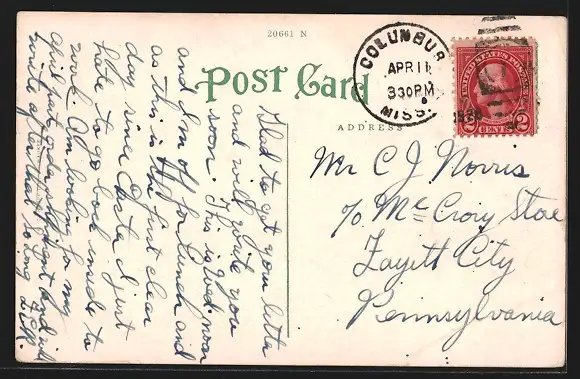 20661 N
Post Card
ADDRESS
COLUMBUS
APR 11
330PM
MISS.
UNITED STATES POSTAGE
2 CENTS 2
Mr C J Norris
% Mc Crory Store
Fayitt City
Pennsylvania
Glad to get you letter
and will write you
soon. This is Wed. noon
and I'm off for lunch and
as this is the first clear
day since Easter I just
hate to go back inside to
work. Am looking for my
April part order shipment and will
write after that so long